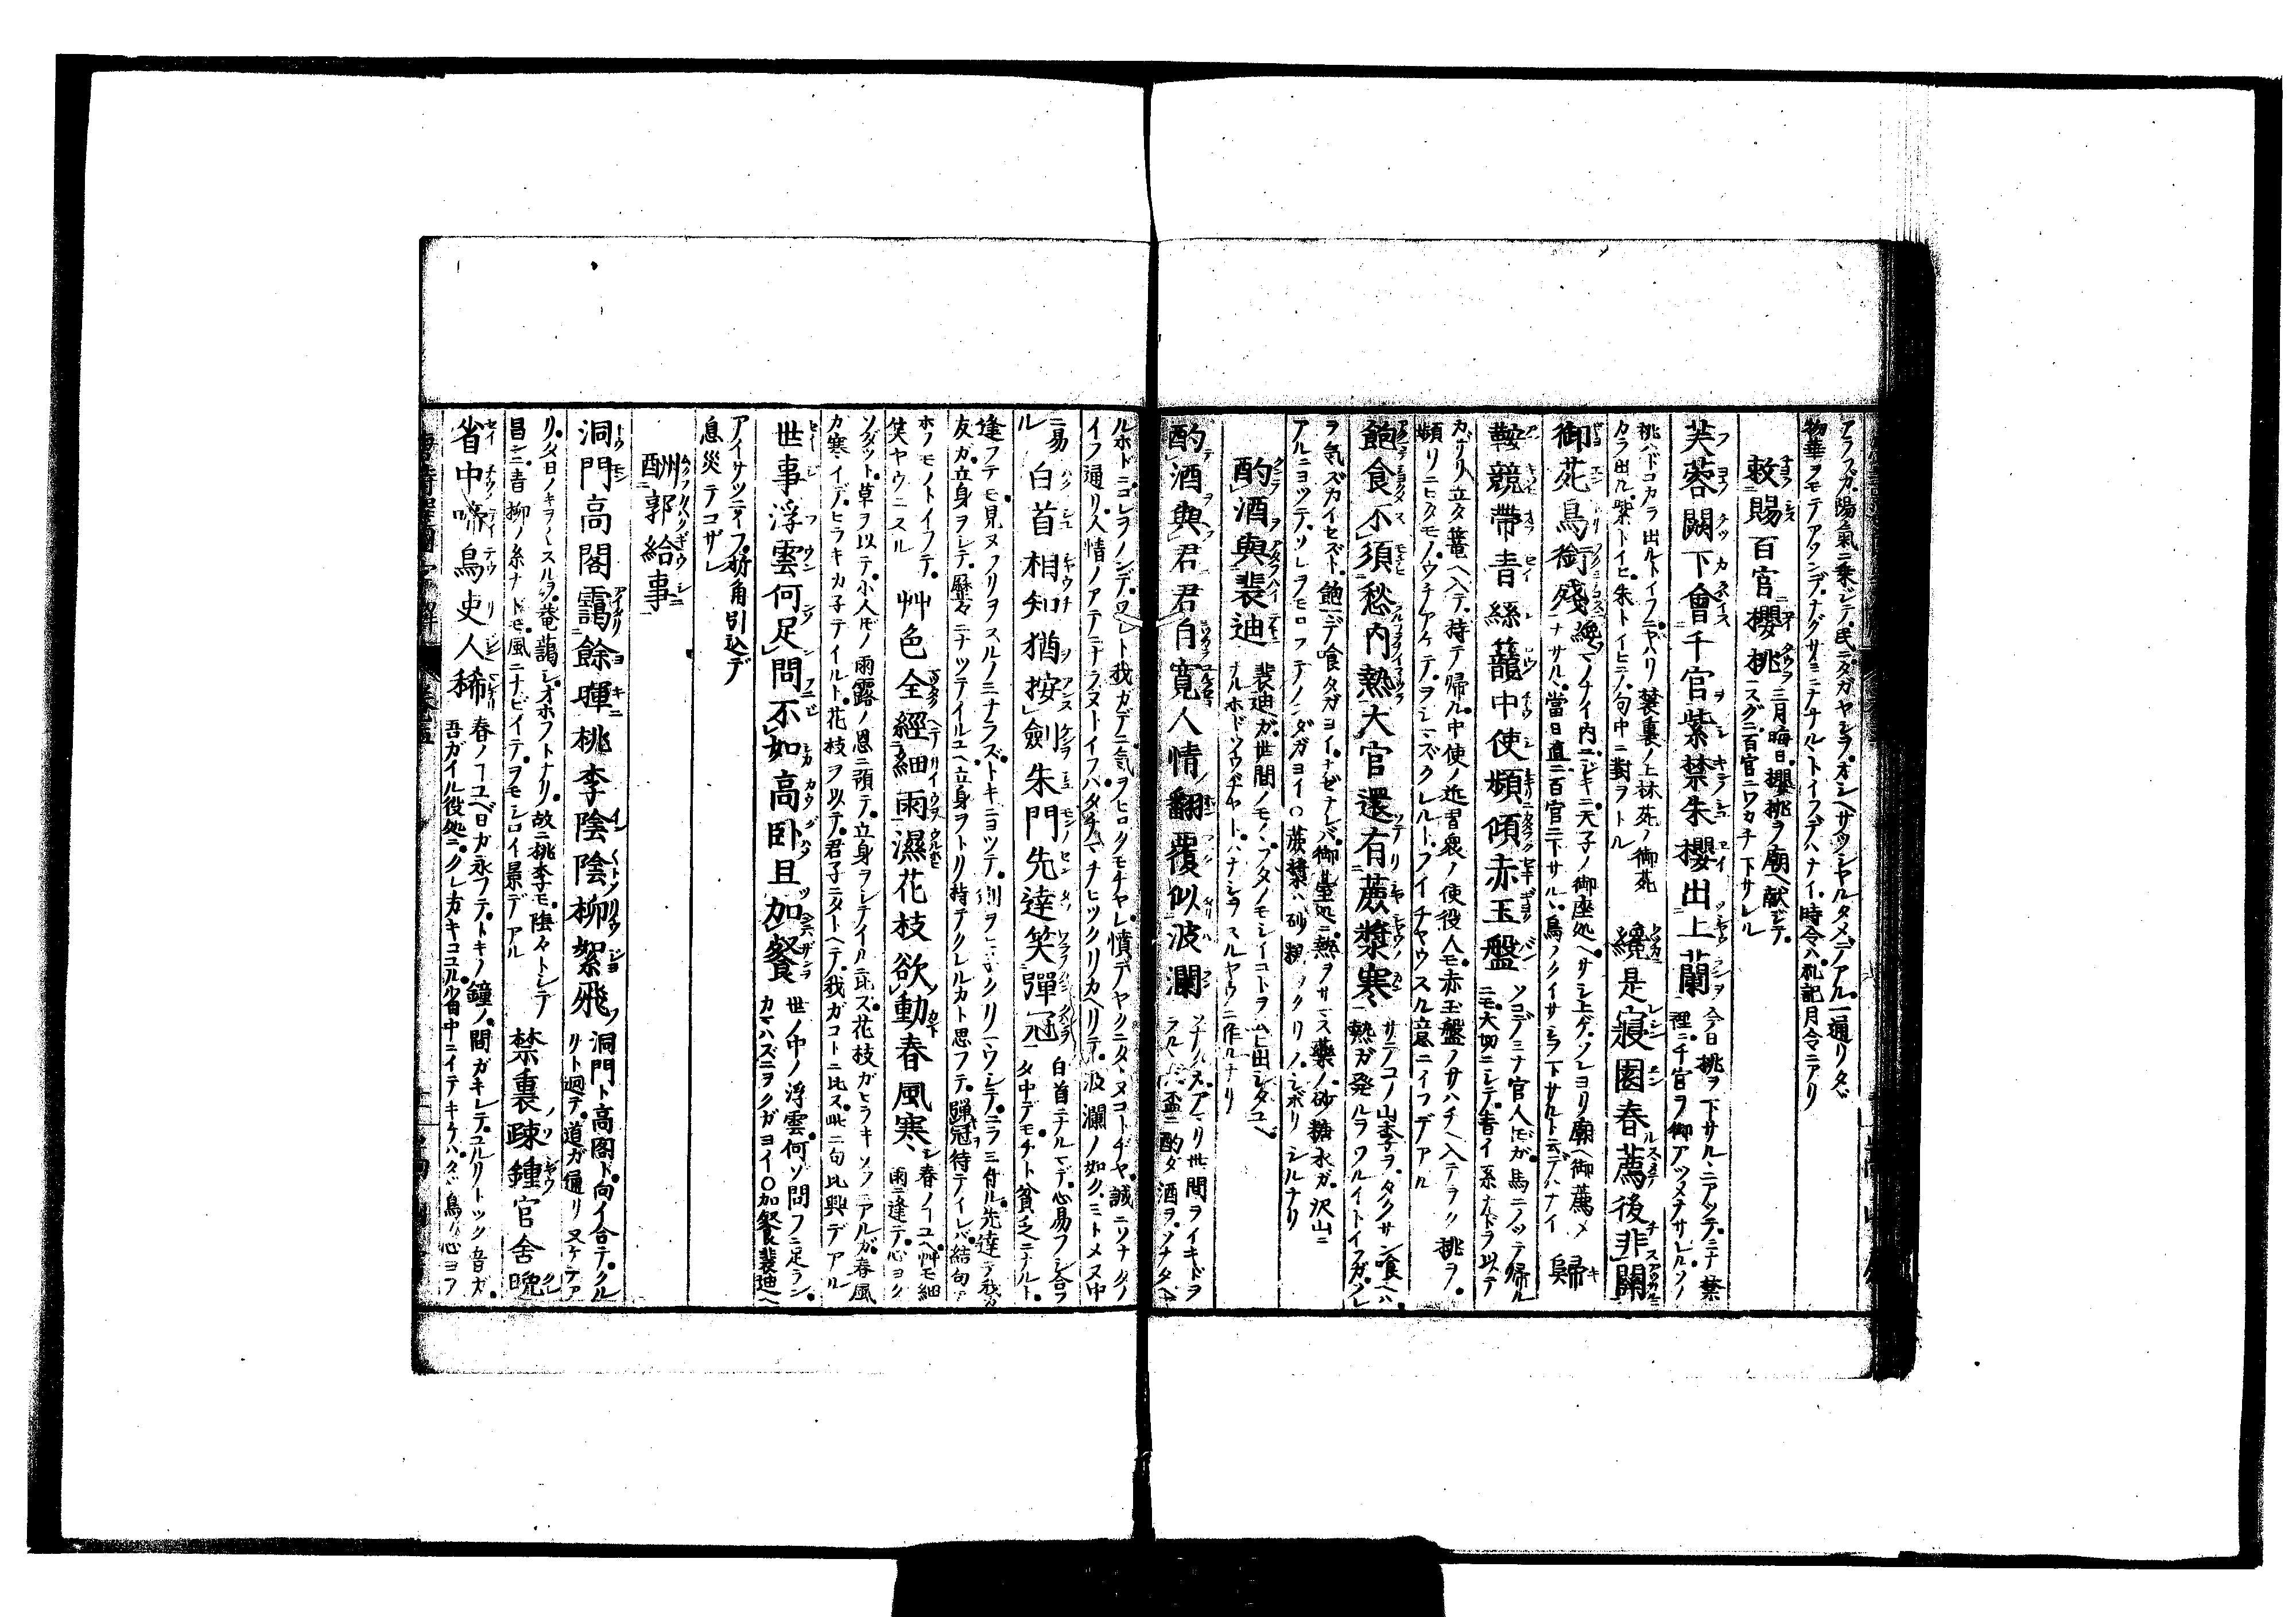 アラフガ陽氣ニ乗ジテ民ニタガヤシヲオシヘサツシヤルタメデアル一通リタヾ
物華ヲモテアソンデナグサミニナナルヽトイフデハナイ時令ハ礼記月令ニアリ
敕賜百官櫻桃
三月晦日櫻桃ヲ廟ヘ献ジテ
スグニ百官ニワカチ下サレル
芙蓉闕下會千官紫禁朱櫻出上蘭
今日桃ヲ下サルヽニアツテミナ禁
裡ニ千官ヲ御アツメナサレルソノ
桃ハドコカラ出ルトイフニヤハリ禁裏ノ上林苑ノ御苑
カラ出ル紫トイヒ朱トイヒテ句中ニ對ヲトル
纔是寢園春薦後非關
御苑鳥銜殘
當日直ニ百官ニ下サルヽ鳥ノクイサシヲ下サルト云デハナイ
歸
鞍競帶青絲籠中使頻傾赤玉盤
ソコデミナ官人ドモガ馬ニノツテ歸ル
ニモ大切ニシテ青イ糸ナドヲ以テ
カザリ立タ篭ヘ入テ持テ帰ル中使ノ近習衆ノ使役人モ赤玉盤ノサハチヘ入テヲク桃ヲ
頻リニヒタモノウチアケテヲシミズクレルトフイチヤウスル意ニイフデアル
飽食不須愁内熱大官還有蔗漿寒
サテコノ山李ヲタクサン喰ヘハ
熱ガ発ルヲワルイトイフガソレ
ヲ気ズカイセズト飽マデ喰タガヨイナゼナレバ御臺処ニ熱ヲサマス藥ノ砂糖水ガ沢山ニ
アルニヨツテソレヲモロフテノンダガヨイ○蔗漿ハ砂糖ツクリノシボリシルナリ
酌酒與裴迪
裴迪ガ世間ノモノヽフタノモシイコトヲ云出シタユヘ
ナルホドソウヂヤトハナシヲスルヤウニ作ルナリ
酌酒與君君自寛人情翻覆似波瀾
ルホドニコレヲノンデワレト我ガデニ気ヲヒロクモチヤレ憤デヤクニタヽヌコトヂヤ誠ニソナタノ
イフ通リ人情ノアテニナラヌトイフハタチマチヒツクリカヘリテ波瀾ノ如クミトメヌ中
ニ易
ル
白首相知猶按劍朱門先達笑彈冠
白首ニナルマデ心易フシ合フ
タ中デモチト貧乏ニナルト
逢フテモ見ヌフリヲスルノミナラズトキニヨツテ
友ガ立身ヲシテ歴々ニナツテイルユヘ立身ヲトリ持テクレルカト思フテ彈冠待テイレバ結句
ホノモノトイフテ
笑ヤウニスル
艸色全經細雨濕花枝欲動春風寒
春ノコユヘ艸モ細
雨ニ逢テ心ヨク
ソダツト草ヲ以テ小人ドモノ雨露ノ恩ニ預テ立身ヲシテイルニ比ス花枝ガヒラキソフニアルガ春風
カ寒イデヒラキカ子テイルト花枝ヲ以テ君子ニタトヘテ我ガコトニ比ス此二句比興デアル
世事浮雲何足問不如高卧且加餐
世ノ中ノ浮雲何ソ問フニ足ラン
カマハズニヲクガヨイ○加餐裴迪ヘ
アイサツニイフ折角引込デ
息災テコザレ
酬郭給事
洞門高閣靄餘暉桃李陰陰柳絮飛
洞門ト高閣ト向イ合テクル
リト廻テ道ガ通リヌケテア
リタ日ノキヲヽスルヲ菴藹シオホフトナリ故ニ桃李モ陰々トシテ
昌ンニ青柳ノ糸ナドモ風ニナビイテヲモシロイ景デアル
禁裏疎鐘官舎晩
省中啼鳥吏人稀
春ノコユヘ日ガ永フテトキノ鐘ノ間ガキレテユルリトツク音ガ
吾ガイル役処ニクレ方キコユル省中ニイテキケハタヾ鳥ガ心ヨフ